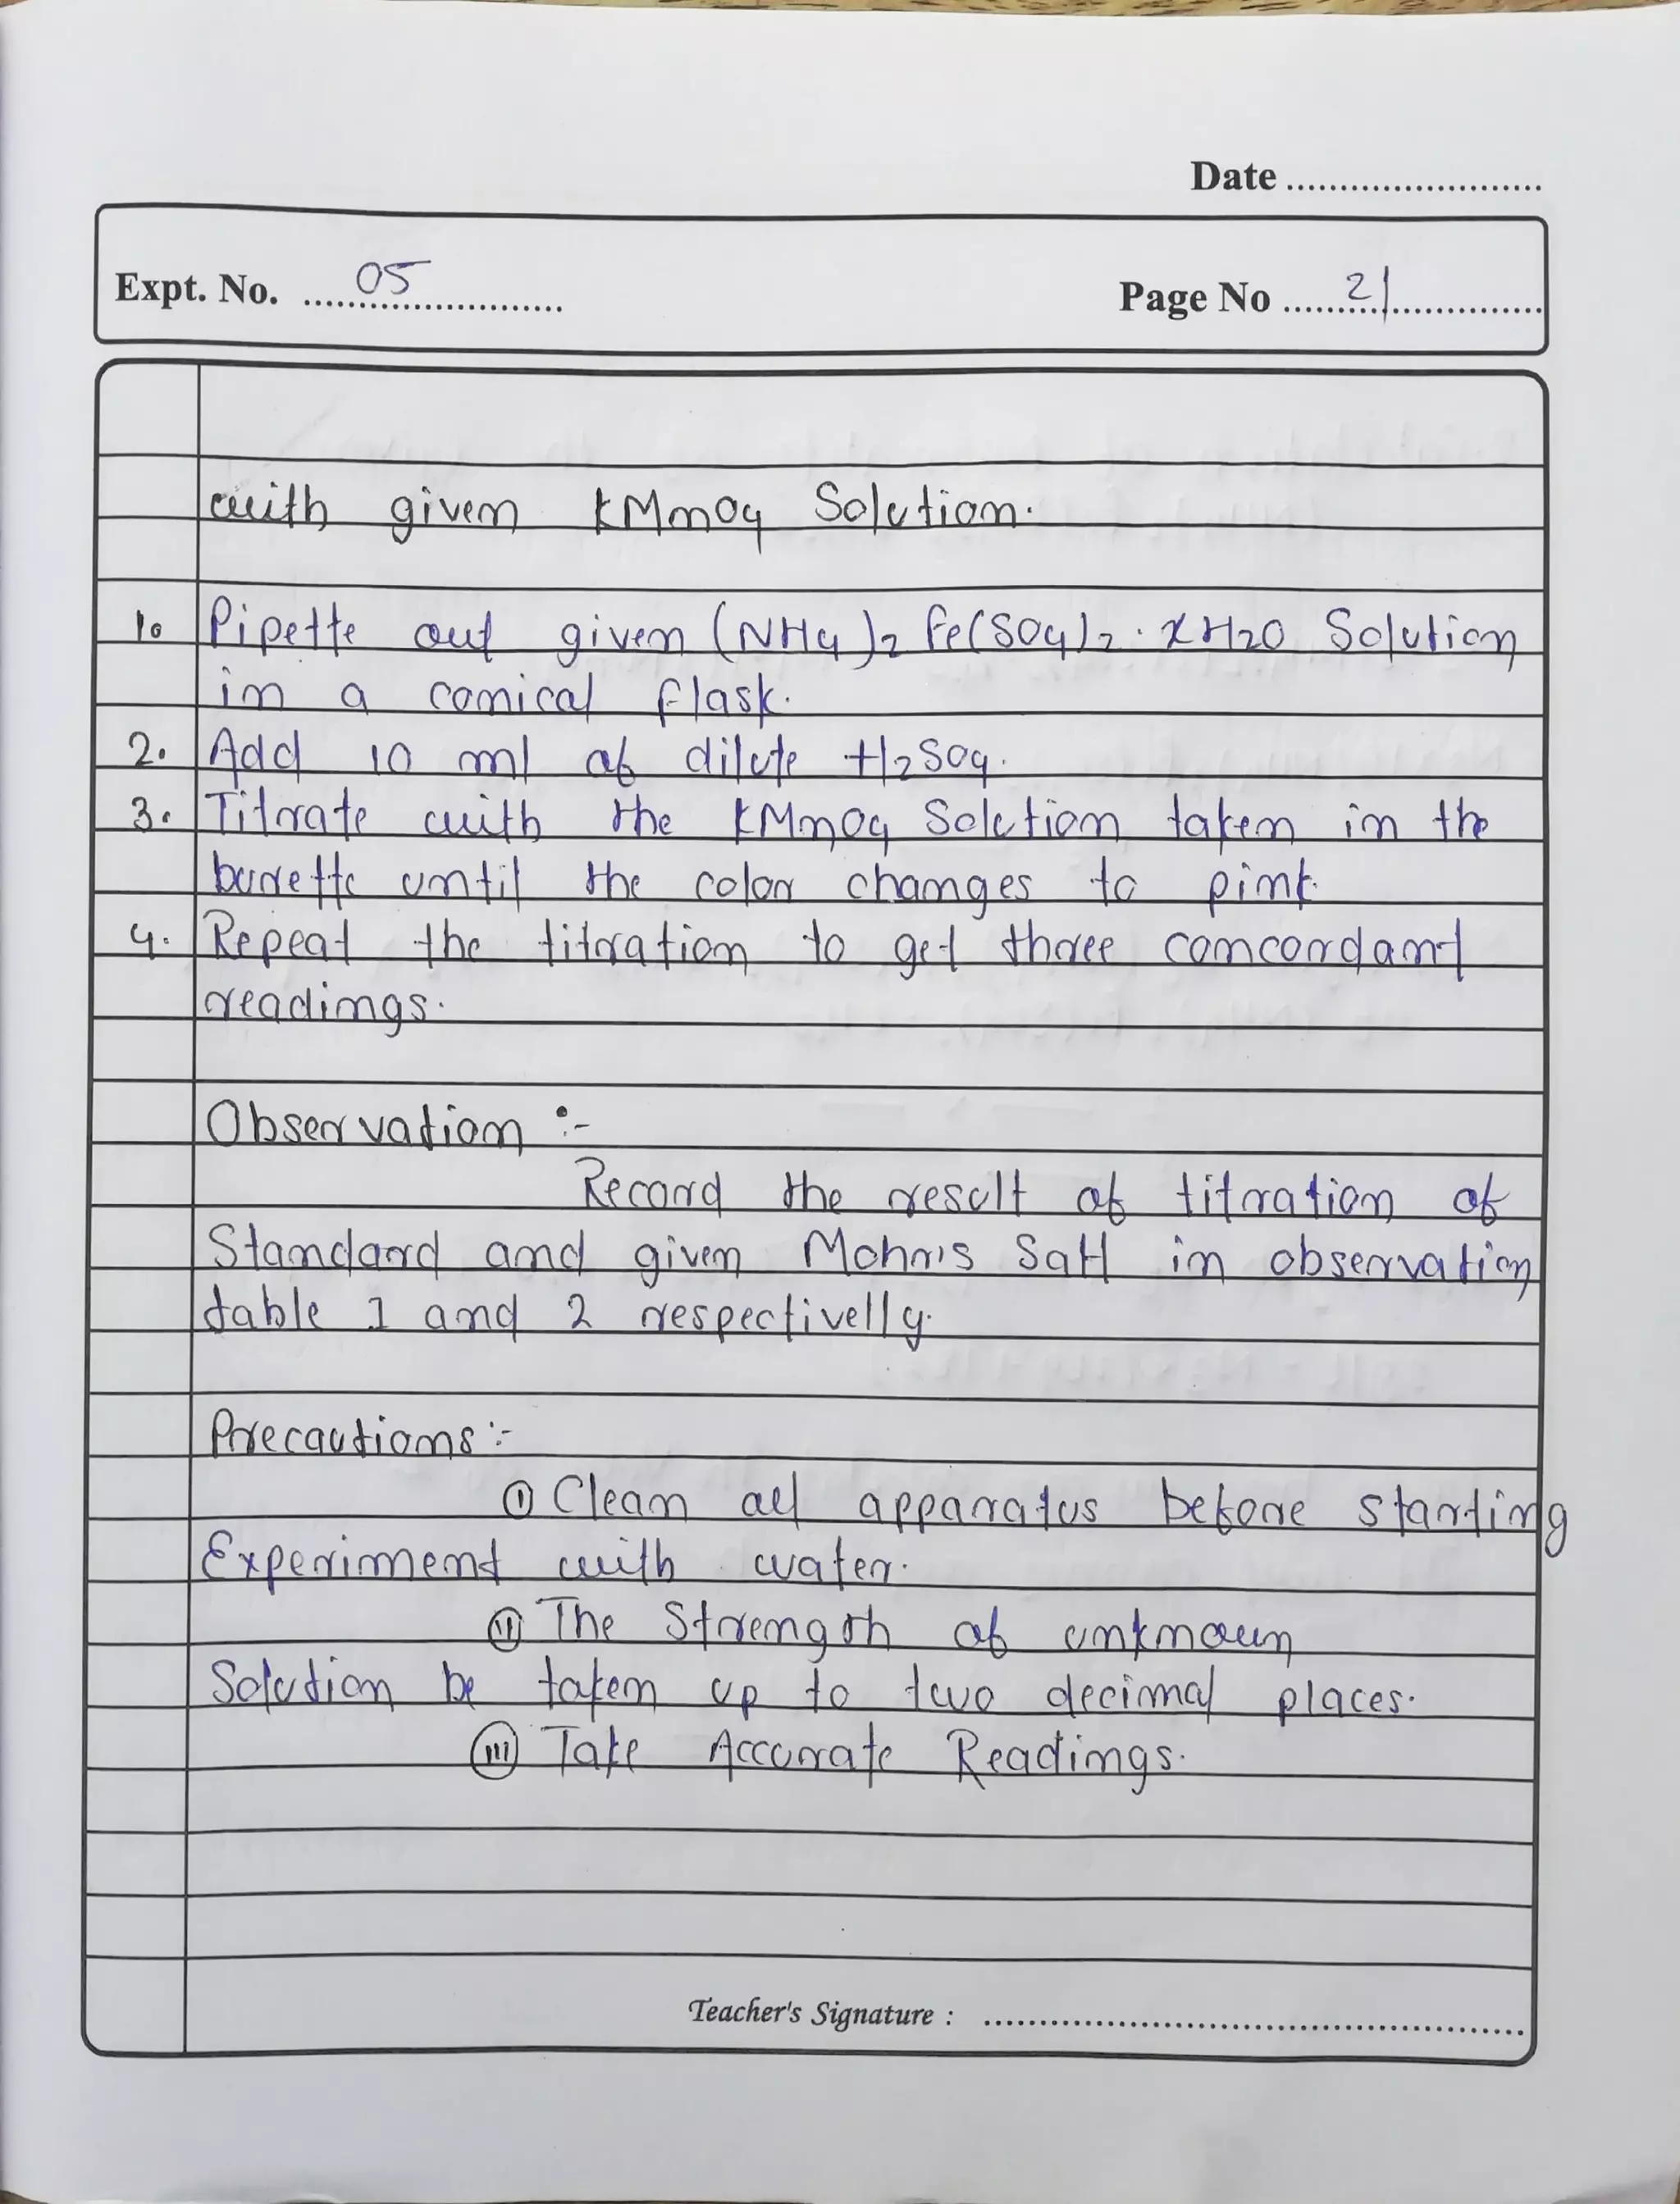 Date ........................
Expt. No. 05
Page No 21
with given KMnO4 Solution.
1. Pipette out given (NH4)2 Fe(SO4)2 . xH2O Solution
in a conical flask.
2. Add 10 ml of dilute H2SO4.
3. Titrate with the KMnO4 Solution taken in the
burette until the color changes to pink.
4. Repeat the titration to get three concordant
readings.
Observation :-
Record the result of titration of
Standard and given Mohr's Salt in observation
table 1 and 2 respectivelly.
Precautions :-
(i) Clean all apparatus before starting
Experiment with water.
(ii) The Strength of unknown
Solution be taken up to two decimal places.
(iii) Take Accurate Readings.
Teacher's Signature : ........................